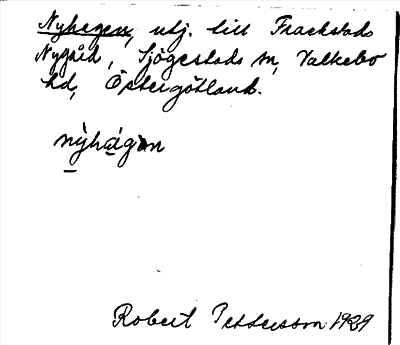 Nyhagen, utj. till Frackstads
Nygård, Sjögestads sn, Valkebo
hd, Östergötland.
nỳhágən
Robert Pettersson 1929